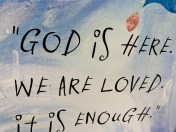 "GOD iS HERE.
WE ARE LOVED.
iT iS ENOUGH."